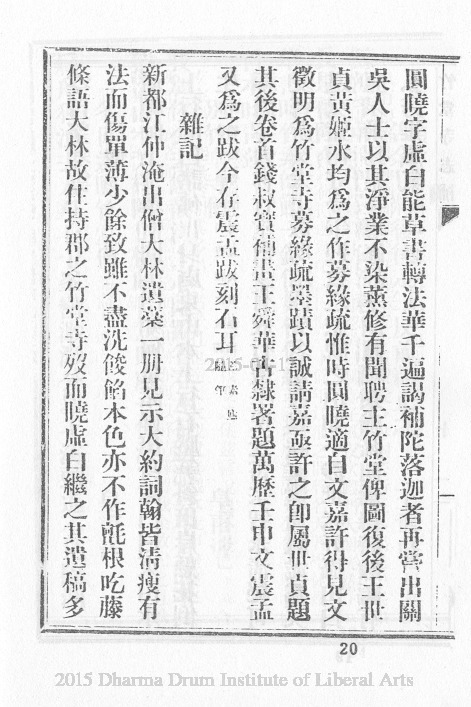 圓曉字虛白能草書轉法華千遍謁補陀落迦者再嘗出關
吳人士以其淨業不染薰修有聞聘主竹堂俾圖復後王世
貞黃姬水均爲之作募緣疏惟時圓曉適自文嘉許得見文
徵明爲竹堂寺募緣疏墨蹟以誠請嘉亟許之卽屬世貞題
其後卷首錢叔寶補畫王舜華古隸署題萬歷壬申文震孟
又爲之跋今存震孟跋刻石耳
雜記
新都江仲淹出僧大林遺藁一册見示大約詞翰皆清瘦有
法而傷單薄少餘致雖不盡洗餕餡本色亦不作氈根吃藤
條語大林故住持郡之竹堂寺歿而曉虛白繼之其遺稿多
20
2015 Dharma Drum Institute of Liberal Arts